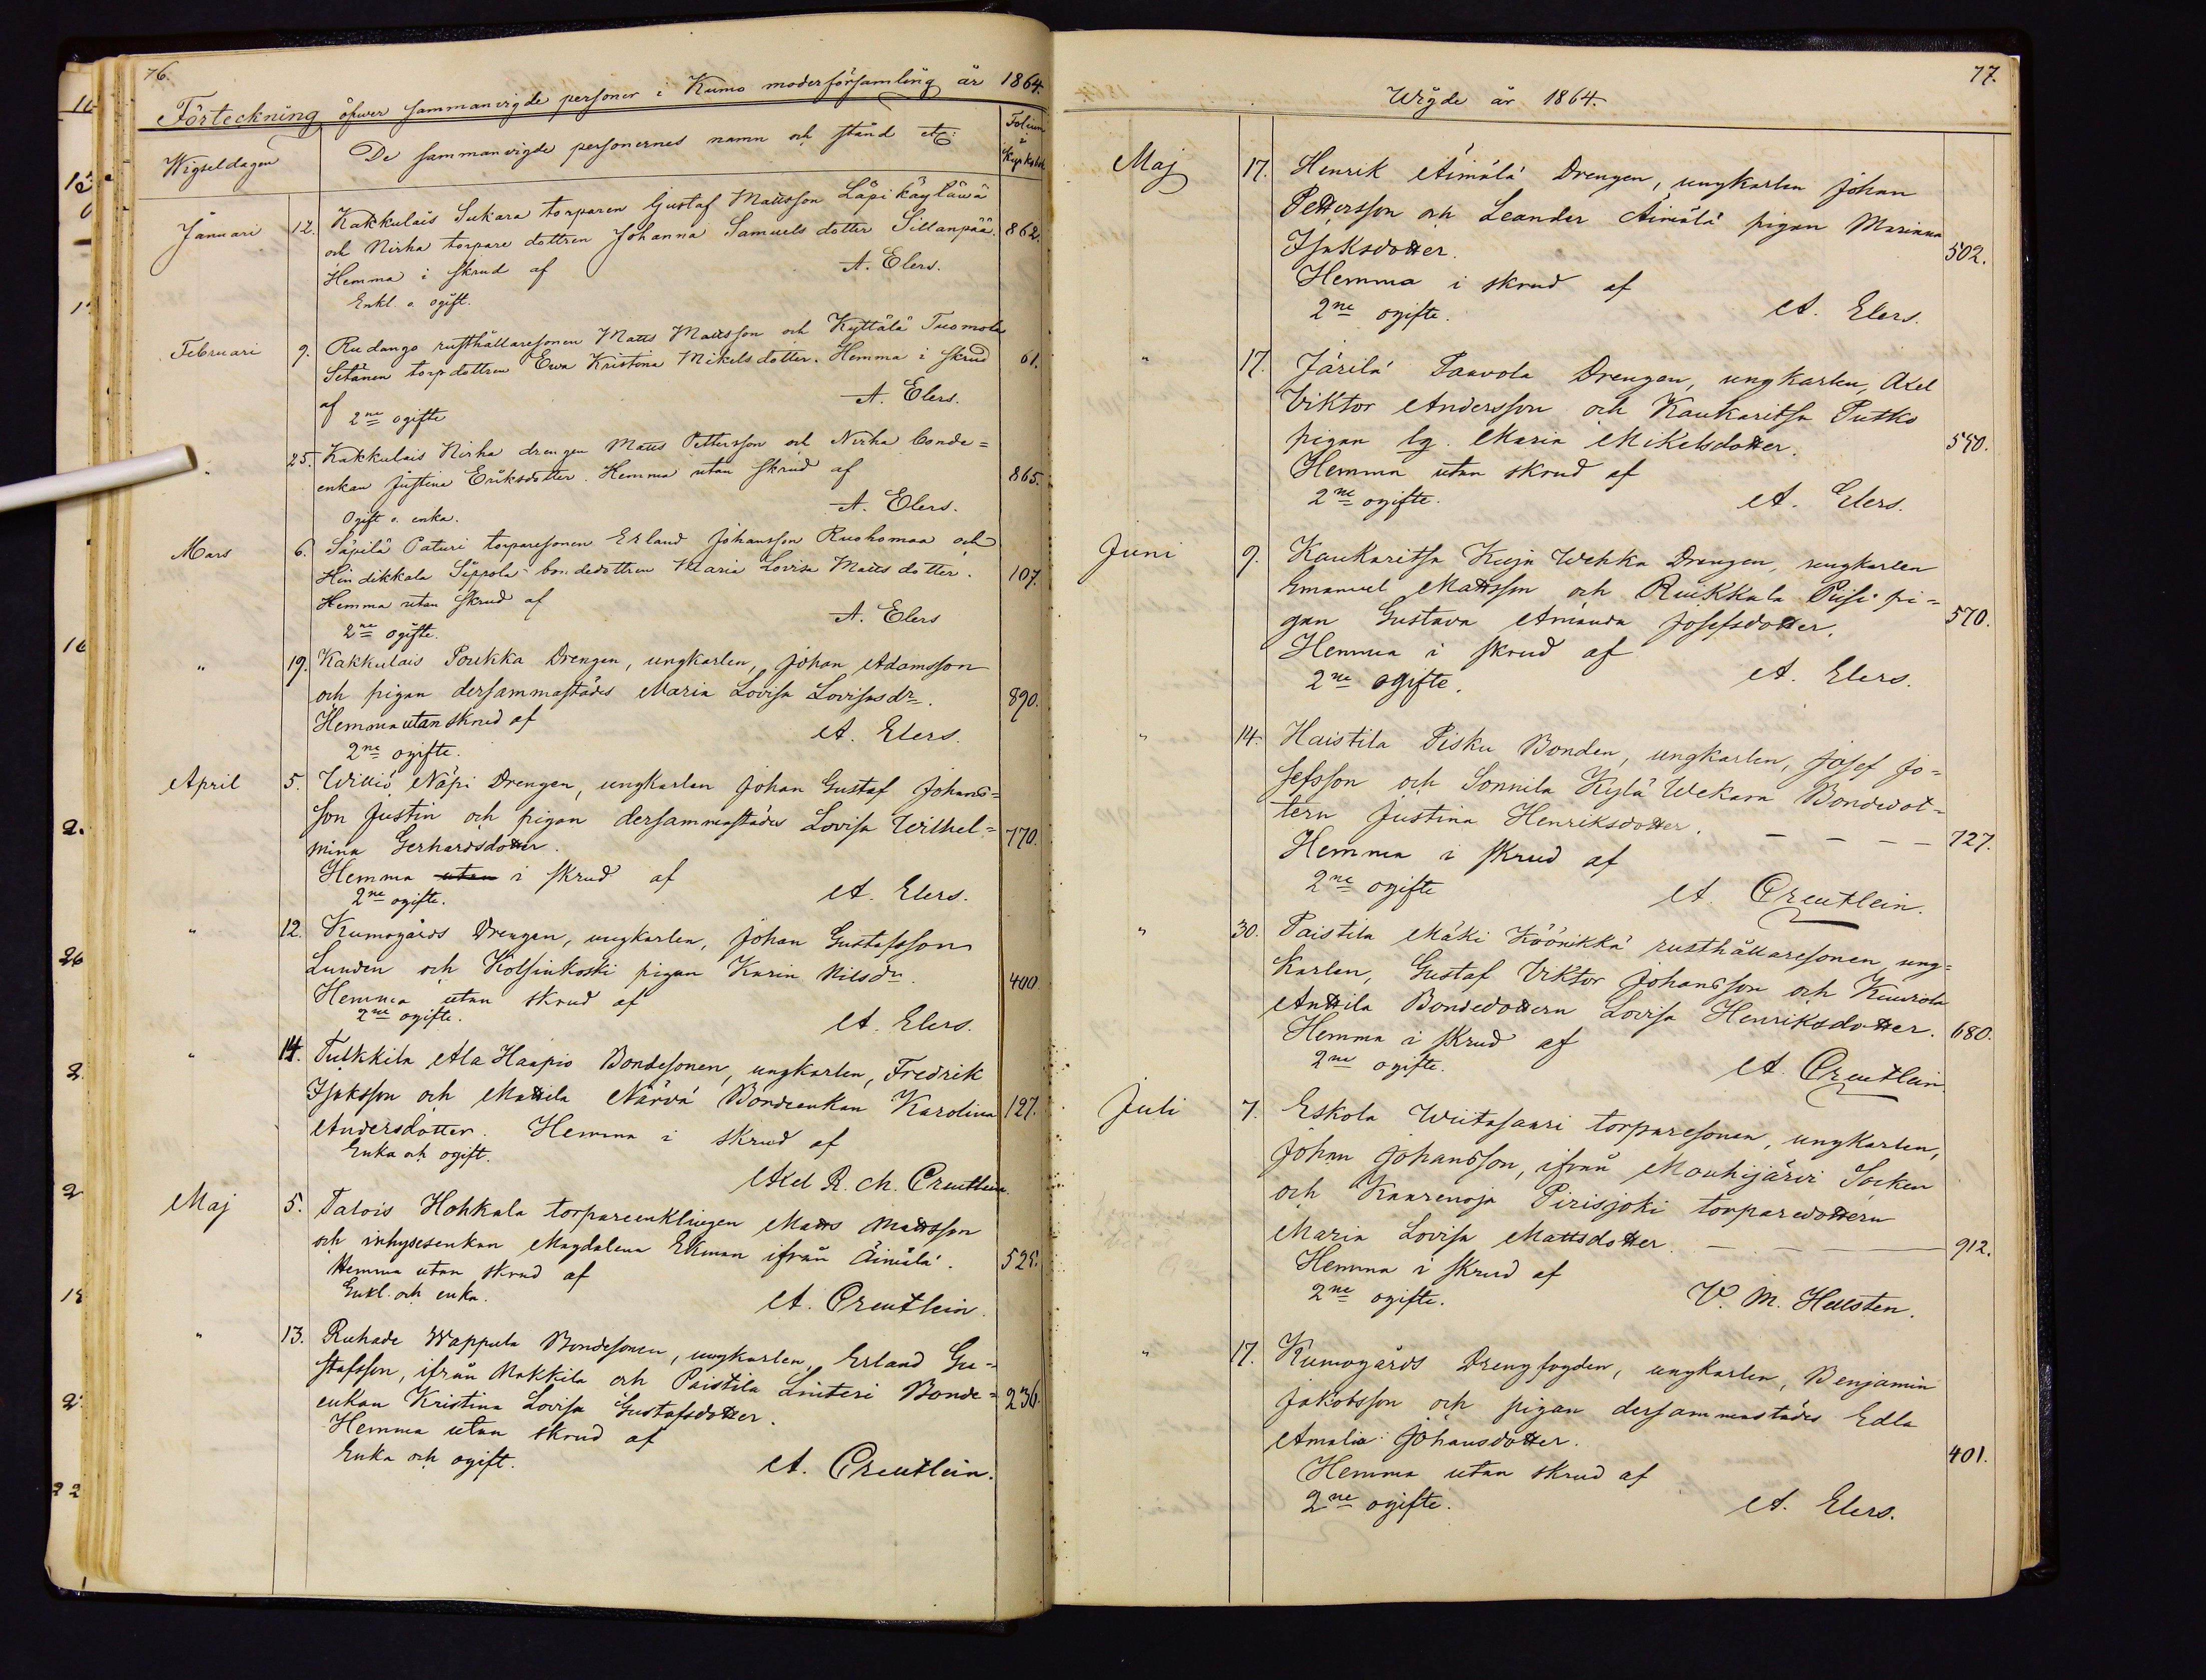 76.
Förteckning öfwer sammanvigde personer i Kumo moderförsamling år 1864.
Wigseldagen De sammanvigde personernes namn och stånd etc: Folium i Kyrkobok
Januari 12. Kakkulais Sukara torparen Gustaf Mattsson Läpikäyläwä
och Nirha torpare dottren Johanna Samuels dotter Sillanpää. 862.
Hemma i skrud af A. Elers.
Enkl. o. ogift.
Februari 9. Rudango rusthållaresonen Matts Mattsson och Kyttälä Tuomola
Setänen torp dottren Ewa Kristina Mikels dotter. Hemma i skrud 61.
af A. Elers.
2ne ogifte
" 25. Kakkulais Nirha drengen Matts Pettersson och Nirha bonde=
enkan Justina Eriksdotter. Hemma utan skrud af 865.
A. Elers.
Ogift o. enka.
Mars 6. Säpilä Paturi torparesonen Erland Johansson Ruohomaa och
Hindikkala Seppola bondedottren Maria Lovisa Matts dotter. 107.
Hemma utan skrud af
A. Elers
2ne ogifte.
" 19. Kakkulais Poukka Drengen, ungkarlen, Johan Adamsson
och pigan dersammastädes Maria Lovisa Lovisasdr. 890.
Hemma utan skrud af
A. Elers.
2ne ogifte.
April 5. Willió Näpi Drengen, ungkarlen Johan Gustaf Johans=
son Justin och pigan dersammastädes Lovisa Wilhel=
mina Gerhardsdotter. 770.
Hemma utan i skrud af
2ne ogifte. A. Elers.
" 12. Kumogårds Drengen, ungkarlen, Johan Gustafsson
Lunden och Kolsinkoski pigan Karin Nilsdr. 400.
Hemma utan skrud af
2ne ogifte. A. Elers.
" 14. Tulkkila Ala Haapio Bondesonen, ungkarlen, Fredrik
Isaksson och Mattila Närvä Bondeenkan Karolina 127.
Andersdotter. Hemma i skrud af
Enka och ogift.
Axel R. M. Creutlein.
Maj 5. Talois Hohkala torpareenklingen Matts Mattsson
och inhysesenkan Magdalena Ekman ifrån Äimälä. 525.
Hemma utan skrud af
Enkl. och enka. A. Creutlein.
" 13. Ruhade Wappula Bondesonen, ungkarlen, Erland Gu=
stafsson, ifrån Makkila och Paistila Liniteri Bonde= 236.
enkan Kristina Lovisa Gustafsdotter.
Hemma utan skrud af
Enka och ogift. A. Creutlein.
77.
Wigde år 1864.
Maj 17. Henrik Äimälä Drengen, ungkarlen Johan
Pettersson och Leander Äimälä pigan Marianna
Isaksdotter. 502.
Hemma i skrud af
2ne ogifte. A. Elers.
" 17. Järilä Paavola Drengen, ungkarlen, Axel
Viktor Andersson och Kaukaritsa Putko
pigan lg. Maria Mikelsdotter. 550.
Hemma utan skrud af
2ne ogifte. A. Elers.
Juni 9. Kaukaritsa Kuja Wehka Drengen, ungkarlen
Emanuel Mattsson och Ruikkala Piisi pi=
gan Gustava Amanda Josefsdotter. 570.
Hemma i skrud af
2ne ogifte. A. Elers.
" 14. Haistila Pisku Bonden, ungkarlen, Josef Jo=
sefsson och Sonnila Kylä Wekara Bondedot=
tern Justina Henriksdotter. 727.
Hemma i skrud af
2ne ogifte A. Creutlein.
" 30. Paistila Mäki Köönikkä rusthållaresonen, ung=
karlen, Gustaf Viktor Johansson och Kuurola
Anttila Bondedottern Lovisa Henriksdotter. 680.
Hemma i skrud af
2ne ogifte. A. Creutlein
Juli 7. Eskola Wiitasaari torparesonen, ungkarlen,
Johan Johansson, ifrån Mouhijärvi Socken
och Kaarenoja Pirisjoki torparedottern
Maria Lovisa Mattsdotter. 912.
Hemma i skrud af
2ne ogifte. V. M. Hellsten.
" 17. Kumogårds Drengfogden, ungkarlen, Benjamin
Jakobsson och pigan dersammastädes Edla
Amalia Johansdotter. 401.
Hemma utan skrud af
2ne ogifte. A. Elers.